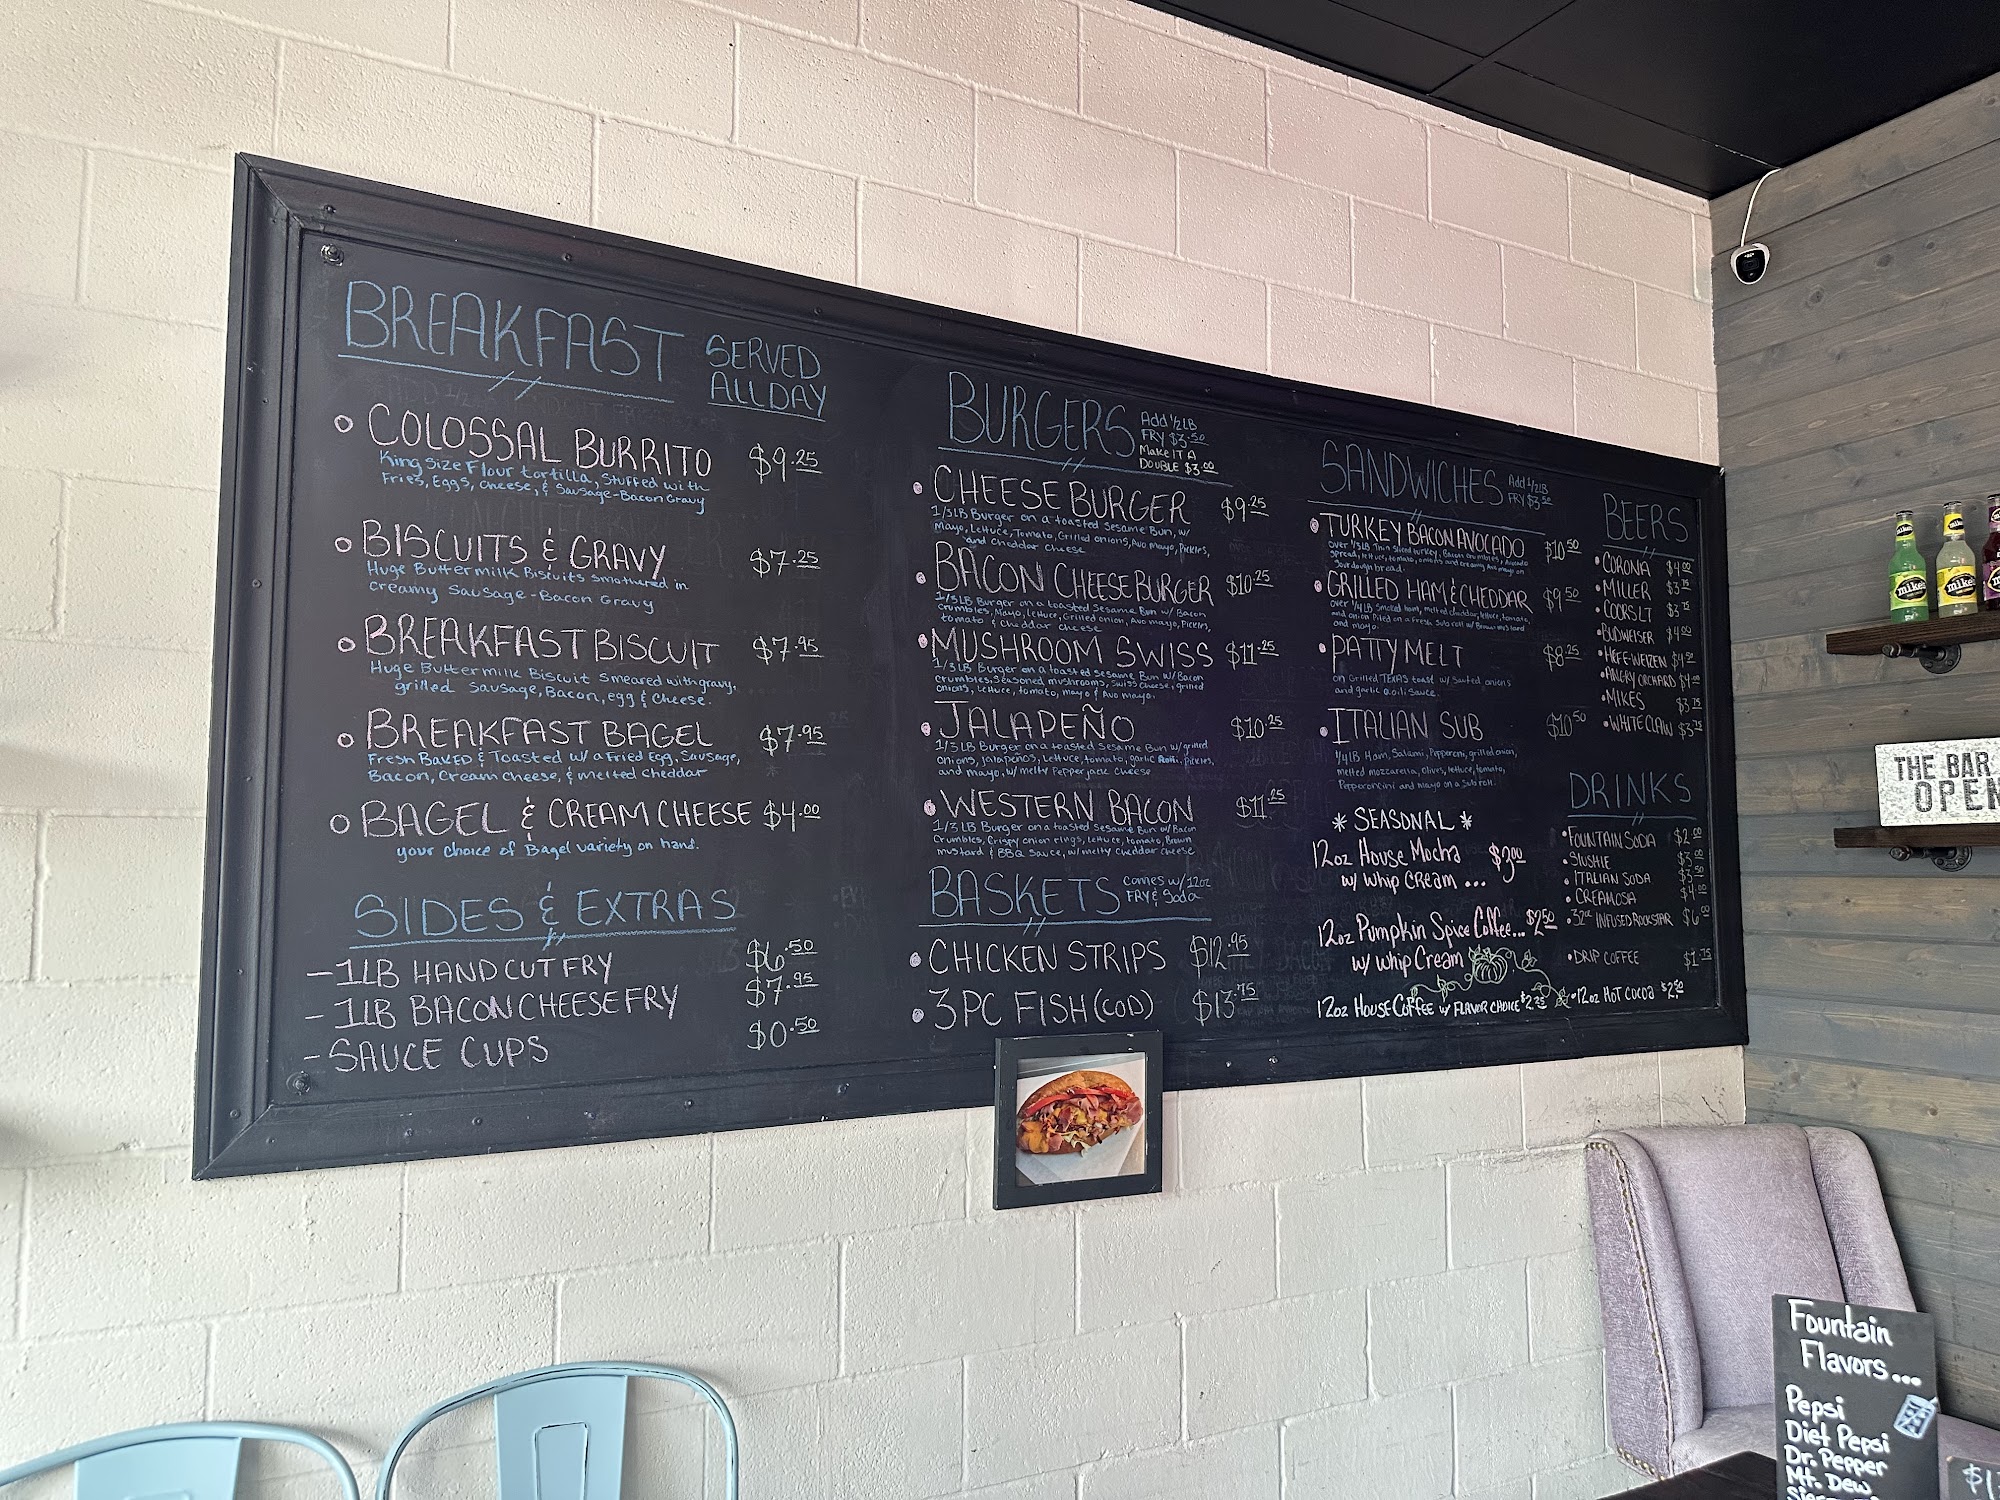 BREAKFAST SERVED
ALL DAY
COLOSSAL BURRITO $9.25
King size Flour tortilla, Stuffed with
Fries, Eggs, Cheese, & Sausage-Bacon Gravy
BISCUITS & GRAVY $7.25
Huge Buttermilk Biscuits smothered in
creamy Sausage-Bacon Gravy
BREAKFAST BISCUIT $7.95
Huge Buttermilk Biscuit smeared with gravy,
grilled Sausage, Bacon, egg & Cheese.
BREAKFAST BAGEL $7.95
Fresh Baked & Toasted w/ a Fried Egg, Sausage,
Bacon, Cream cheese, & melted Cheddar
BAGEL & CREAM CHEESE $4.00
your choice of Bagel variety on hand.
SIDES & EXTRAS
-1LB HAND CUT FRY $6.50
-1LB BACON CHEESE FRY $7.95
-SAUCE CUPS $0.50
BURGERS
Add 1/2LB
FRY $3.50
Make IT A
DOUBLE $3.00
CHEESE BURGER $9.25
1/3LB Burger on a toasted Sesame Bun, w/
Mayo, Lettuce, Tomato, Grilled onions, Avo Mayo, Pickles,
and Cheddar Cheese
BACON CHEESE BURGER $10.25
1/3LB Burger on a toasted Sesame Bun w/ Bacon
crumbles, Mayo, Lettuce, Grilled onion, Avo mayo, Pickles,
tomato & cheddar cheese
MUSHROOM SWISS $11.25
1/3LB Burger on a toasted Sesame Bun w/ Bacon
crumbles, Seasoned mushrooms, Swiss Cheese, grilled
onions, Lettuce, tomato, mayo & Avo mayo.
JALAPEÑO $10.25
1/3LB Burger on a toasted Sesame Bun w/ grilled
onions, jalapeños, Lettuce, tomato, garlic Aoili, Pickles,
and mayo, w/ melty Pepperjack Cheese
WESTERN BACON $11.25
1/3LB Burger on a toasted Sesame Bun w/ Bacon
Crumbles, Crispy onion rings, Lettuce, tomato, Brown
mustard & BBQ Sauce, w/ melty Cheddar Cheese
BASKETS
comes w/ 12oz
FRY & Soda
CHICKEN STRIPS $12.95
3PC FISH (COD) $13.75
SANDWICHES
Add 1/2LB
FRY $3.50
TURKEY BACON AVOCADO $10.50
over 1/3LB Thin Sliced turkey, Bacon crumbles, Avocado
Spread, lettuce, tomato, onions and creamy Avo mayo on
Sourdough bread.
GRILLED HAM & CHEDDAR $9.50
over 1/4LB Smoked ham, melted cheddar, lettuce, tomato,
and onion Piled on a Fresh Sub roll w/ Brown mustard
and mayo.
PATTY MELT $8.25
on Grilled TEXAS toast w/ Sauted onions
and garlic aoili Sauce.
ITALIAN SUB $10.50
1/4LB Ham, Salami, Pepperoni, grilled onion,
melted mozzarella, olives, lettuce, tomato,
Pepperoncini and mayo on a Sub roll.
* SEASONAL *
12oz House Mocha $3.00
w/ Whip Cream ...
12oz Pumpkin Spice Coffee... $2.50
w/ Whip Cream
12oz HOUSE COFFEE w/ FLAVOR CHOICE $2.25
BEERS
CORONA $4.00
MILLER $3.75
COORS LT $3.75
BUDWEISER $4.00
HEFE-WEIZEN $4.50
ANGRY ORCHARD $4.00
MIKES $3.75
WHITE CLAW $3.75
DRINKS
FOUNTAIN SODA $2.00
SLUSHIE $3.00
ITALIAN SODA $3.50
CREAMOSA $4.00
32oz INFUSED ROCKSTAR $6.00
DRIP COFFEE $1.75
12oz HOT COCOA $2.50
mike's
mike's
mike's
THE BAR
OPEN
Fountain
Flavors...
Pepsi
Diet Pepsi
Dr. Pepper
Mt. Dew